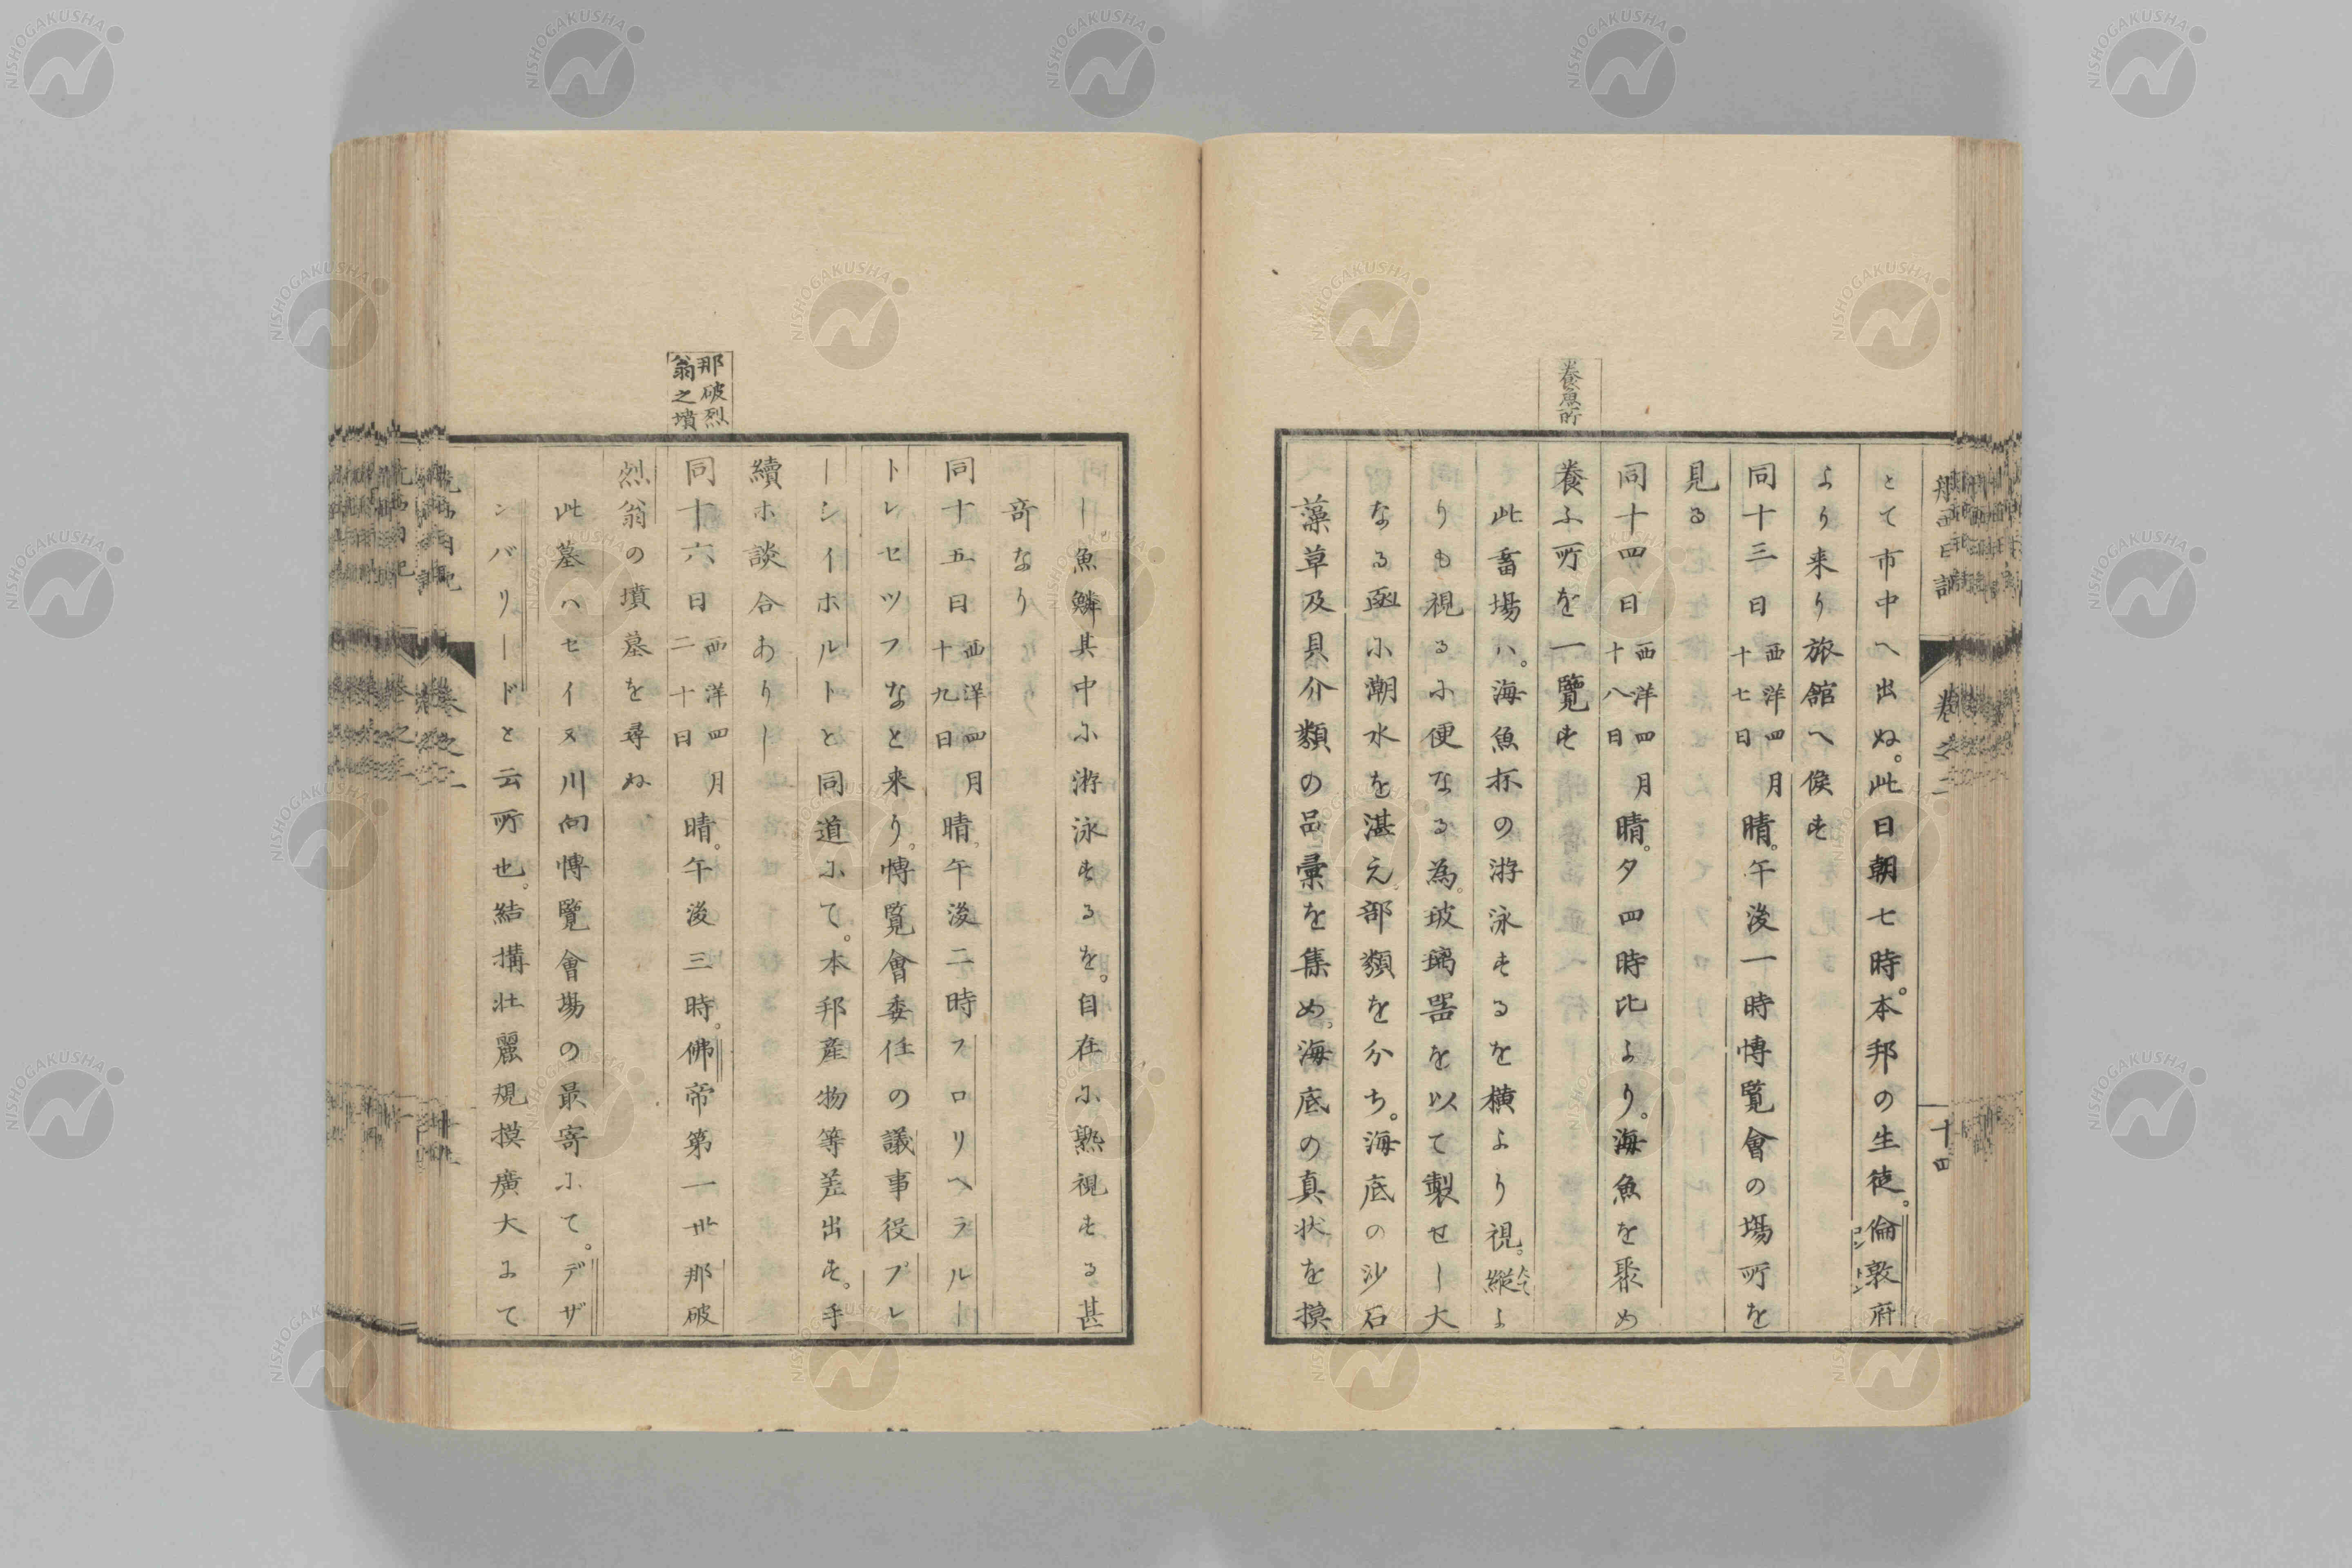 航西日記
卷之二
十四
とて市中へ出ぬ。此日朝七時。本邦の生徒。倫敦府
ロンドン
より来り旅舘へ候す
同十三日西洋四月十七日晴。午後一時博覧會の場所を
見る
同十四日西洋四月十八日晴。夕四時比より。海魚を聚め
養魚所
養ふ所を一覽す
此畜場ハ。海魚抔の游泳するを横より視。縦よ
たて
りも視るに便なる為。玻璃器を以て製せし大
なる函に潮水を湛え。部類を分ち。海底の沙石
藻草及貝介類の品彙を集め。海底の真状を摸
し魚鱗其中に游泳するを。自在に熟視する甚
竒なり
同十五日西洋四月十九日晴。午後二時フロリヘラルー
トレセツフなと来り。博覧會委任の議事役プレ
ーシイホルトと同道にて。本邦産物等差出す。手
續ホ談合ありし
那破烈
翁之墳
同十六日西洋四月二十日晴。午後三時。佛帝第一世那破
烈翁の墳墓を尋ぬ
此墓ハセイヌ川向博覽會場の最寄にて。デザ
ンバリードと云所也。結搆壮麗規摸廣大にて
NISHOGAKUSHA